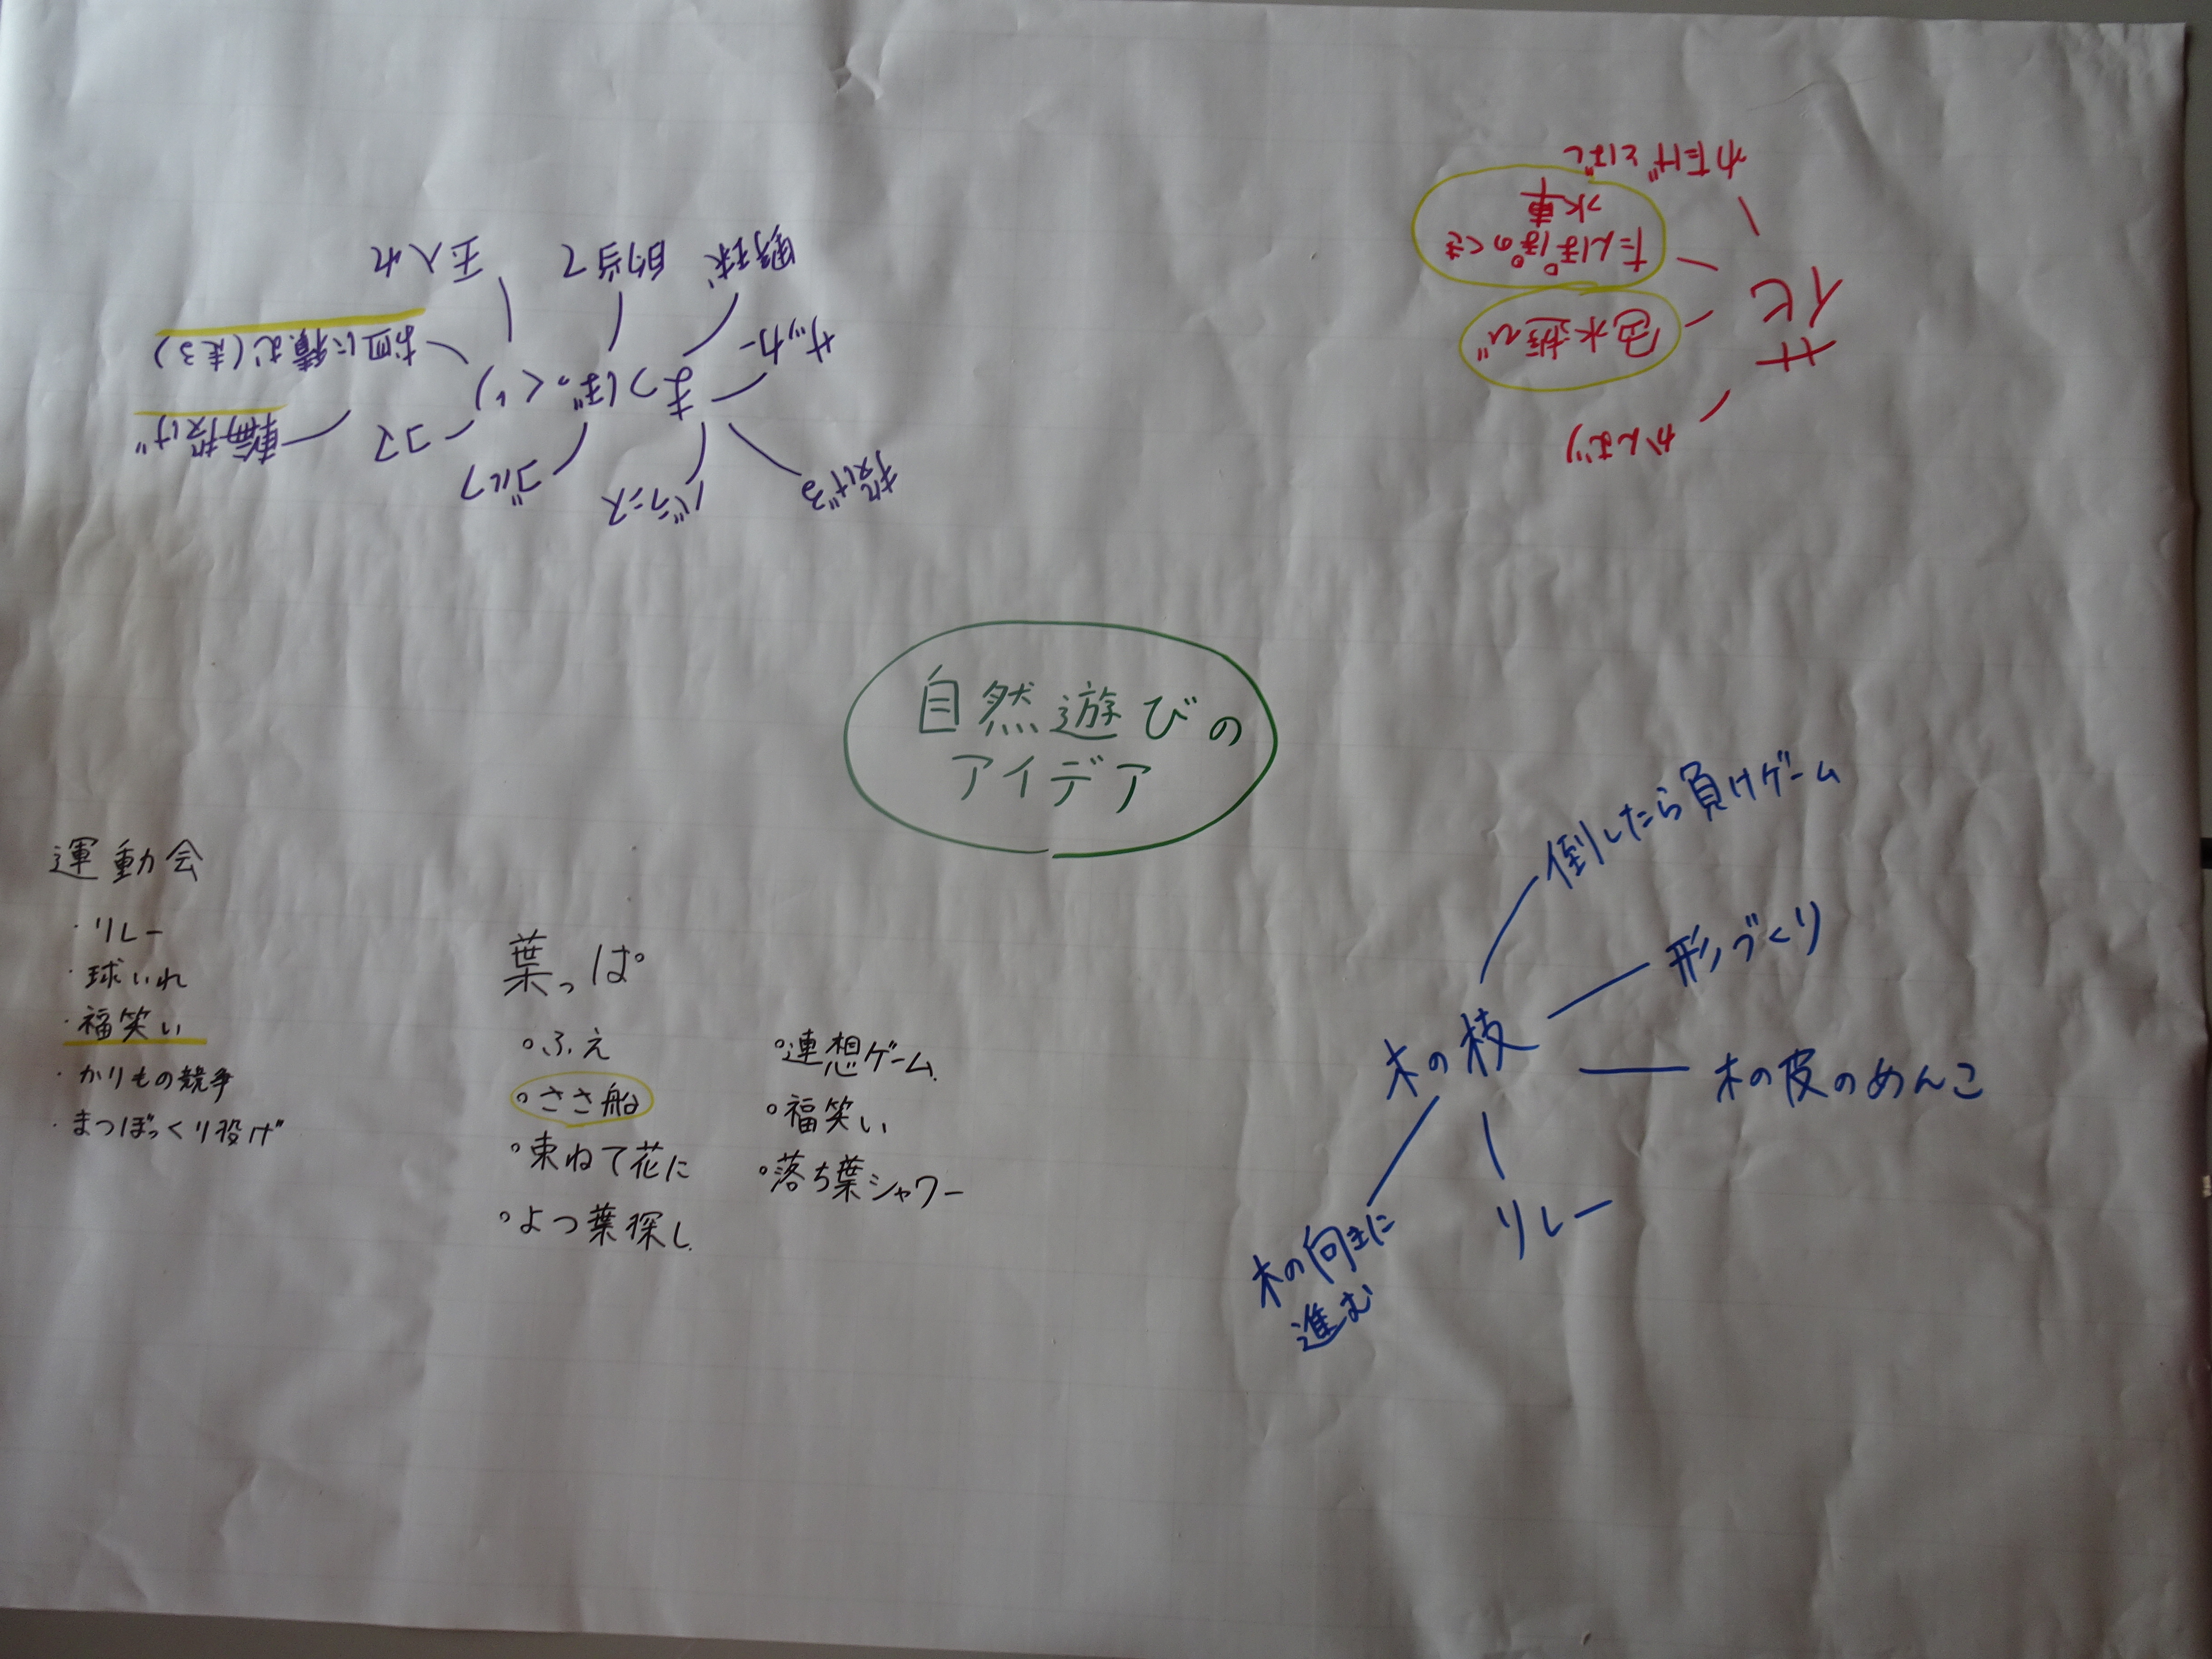 自然遊びの
アイデア
運動会
・リレー
・球いれ
・福笑い
・かりもの競争
・まつぼっくり投げ
葉っぱ
・ふえ
・ささ船
・束ねて花に
・よつ葉探し
・連想ゲーム
・福笑い
・落ち葉シャワー
木の枝
倒したら負けゲーム
形づくり
木の皮のめんこ
リレー
木の向きに
進む
まつぼっくり
投げる
バランス
ゴルフ
コマ
輪投げ
お皿に積む(走る)
玉入れ
的当て
野球
サッカー
花
かんむり
色水遊び
たんぽぽのくき
水車
わたげとばし